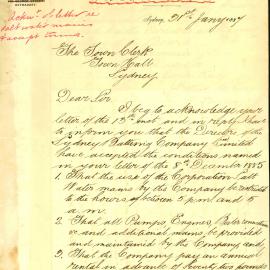 Ackn. & letter re
salt water mains
& accept terms.
Sydney, 21st Jany 1887
The Town Clerk
Town Hall
Sydney
Dear Sir
I beg to acknowledge your
letter of the 13th inst and in reply I have
to inform you that the Directors of the
Sydney Bathing Company Limited
have accepted the conditions named
in your letter of the 8th December 1885
1. That the use of the Corporation Salt
Water mains by the Company be restricted
to the hours of between 5 pm and 5
a.m.
2. That all Pumps, Engines,
and additional mains, be provided
and maintained by the Company and
3. That the Company pay an annual
rental in advance of seventy two pounds